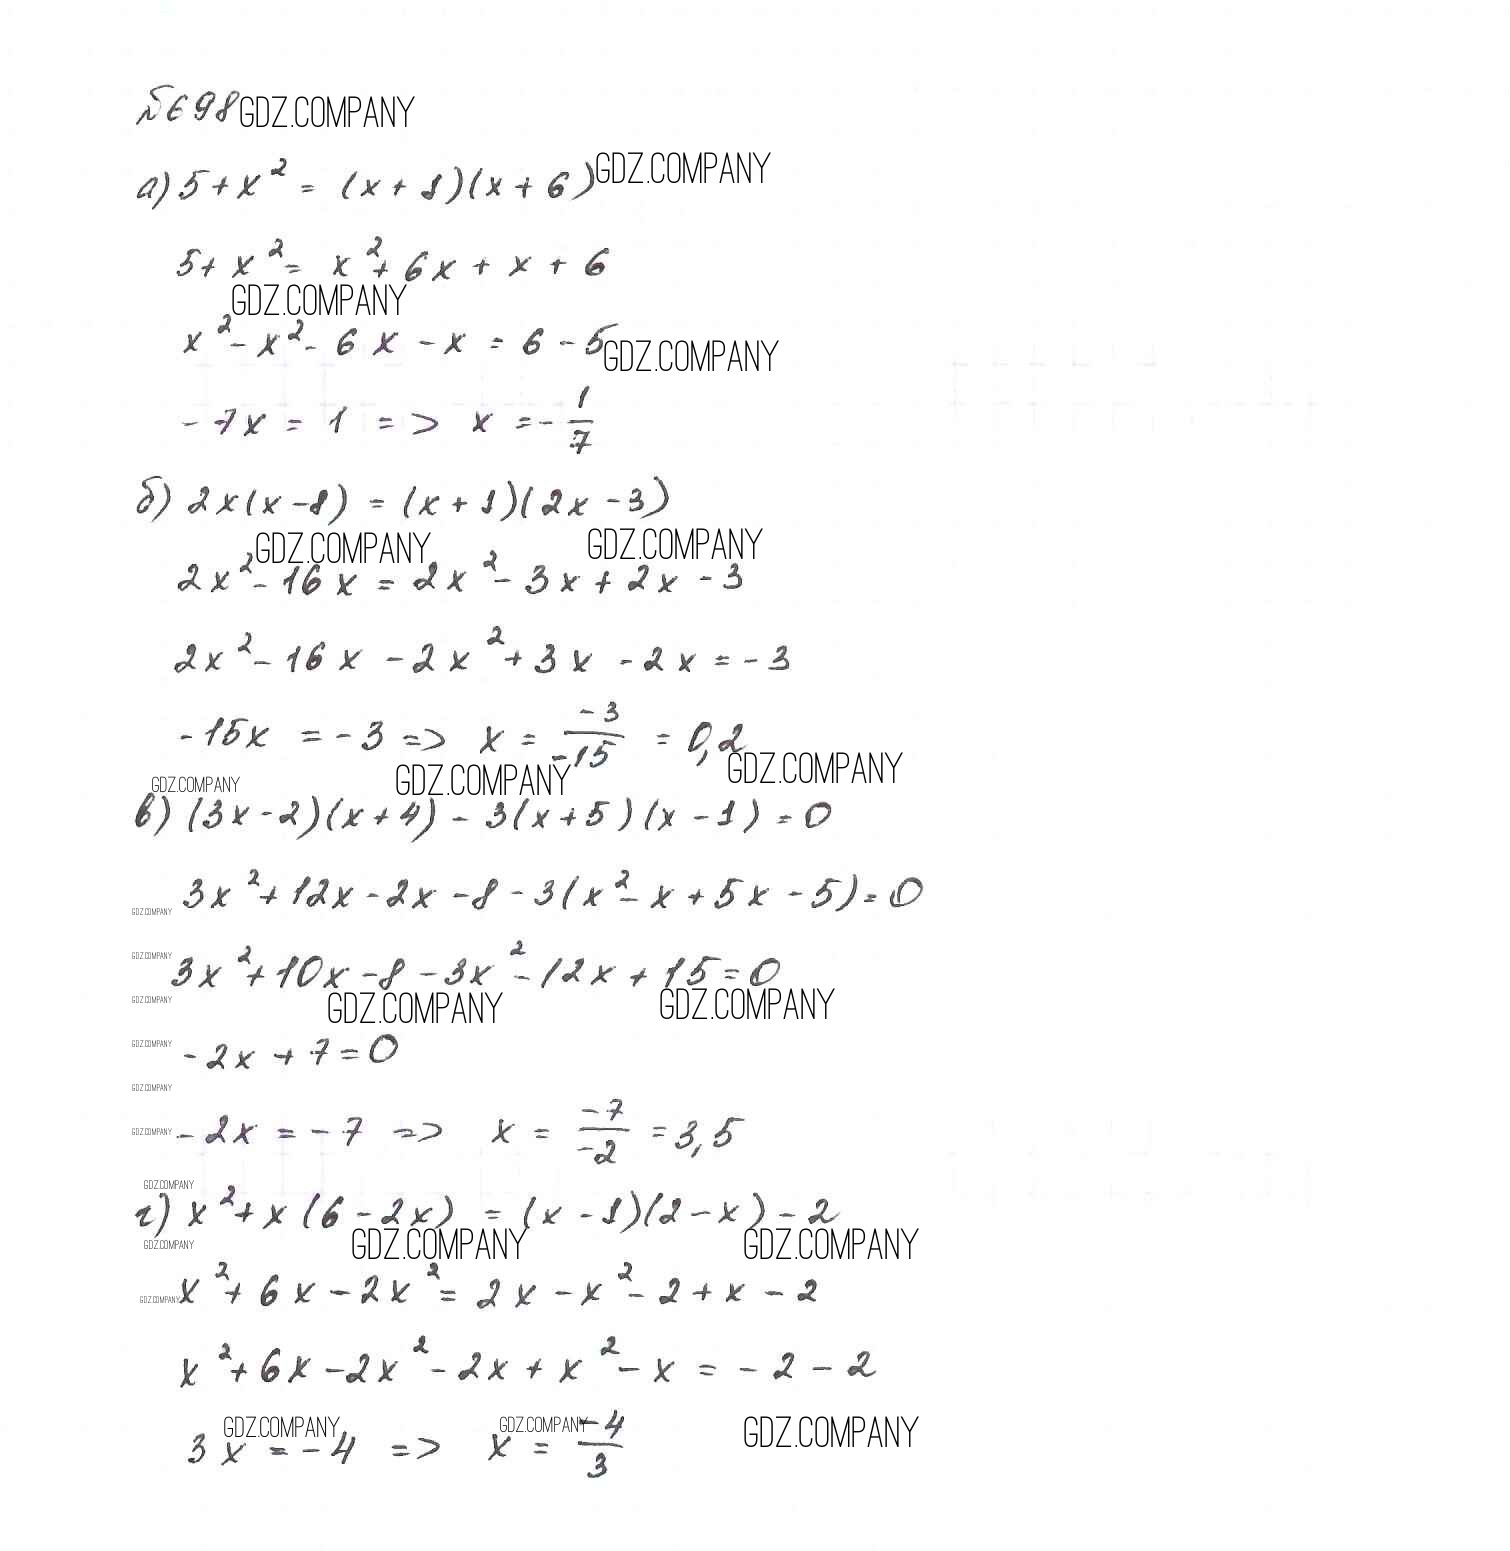 №698 GDZ.COMPANY
а) 5 + x² = (x + 1)(x + 6) GDZ.COMPANY
5 + x² = x² + 6x + x + 6
GDZ.COMPANY
x² - x² - 6x - x = 6 - 5 GDZ.COMPANY
- 7x = 1 => x = - 1/7
б) 2x(x - 8) = (x + 1)(2x - 3)
GDZ.COMPANY GDZ.COMPANY
2x² - 16x = 2x² - 3x + 2x - 3
2x² - 16x - 2x² + 3x - 2x = - 3
- 15x = - 3 => x = -3/-15 = 0,2
GDZ.COMPANY GDZ.COMPANY GDZ.COMPANY
в) (3x - 2)(x + 4) - 3(x + 5)(x - 1) = 0
3x² + 12x - 2x - 8 - 3(x² - x + 5x - 5) = 0
GDZ.COMPANY
GDZ.COMPANY
3x² + 10x - 8 - 3x² - 12x + 15 = 0
GDZ.COMPANY GDZ.COMPANY GDZ.COMPANY
GDZ.COMPANY
- 2x + 7 = 0
GDZ.COMPANY
GDZ.COMPANY
- 2x = - 7 => x = -7/-2 = 3,5
GDZ.COMPANY
г) x² + x(6 - 2x) = (x - 1)(2 - x) - 2
GDZ.COMPANY GDZ.COMPANY GDZ.COMPANY
GDZ.COMPANY
x² + 6x - 2x² = 2x - x² - 2 + x - 2
x² + 6x - 2x² - 2x + x² - x = - 2 - 2
GDZ.COMPANY GDZ.COMPANY GDZ.COMPANY
3x = - 4 => x = -4/3